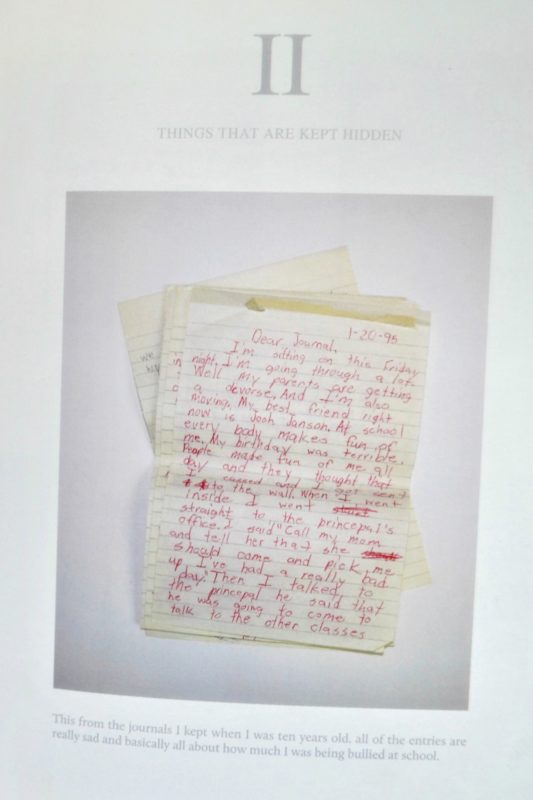 II
THINGS THAT ARE KEPT HIDDEN
we
1-20-95
Dear Journal,
I'm sitting on this Friday
night, I'm going through a lot.
Well my parents are getting
a devorse, And I'm also
moving. My best friend right
now is Josh Janson. At school
every body makes fun of
me. My birthday was terrible.
People made fun of me all
day and they thought that
I cussed and I got sent
to the wall. When I went
inside I went
straight to the princepal's
office. I said "Call my mom
and tell her that she
should come and pick me
up I've had a really bad
day." Then I talked to
the princepal he said that
he was going to come to
talk to the other classes
This from the journals I kept when I was ten years old. all of the entries are
really sad and basically all about how much I was being bullied at school.